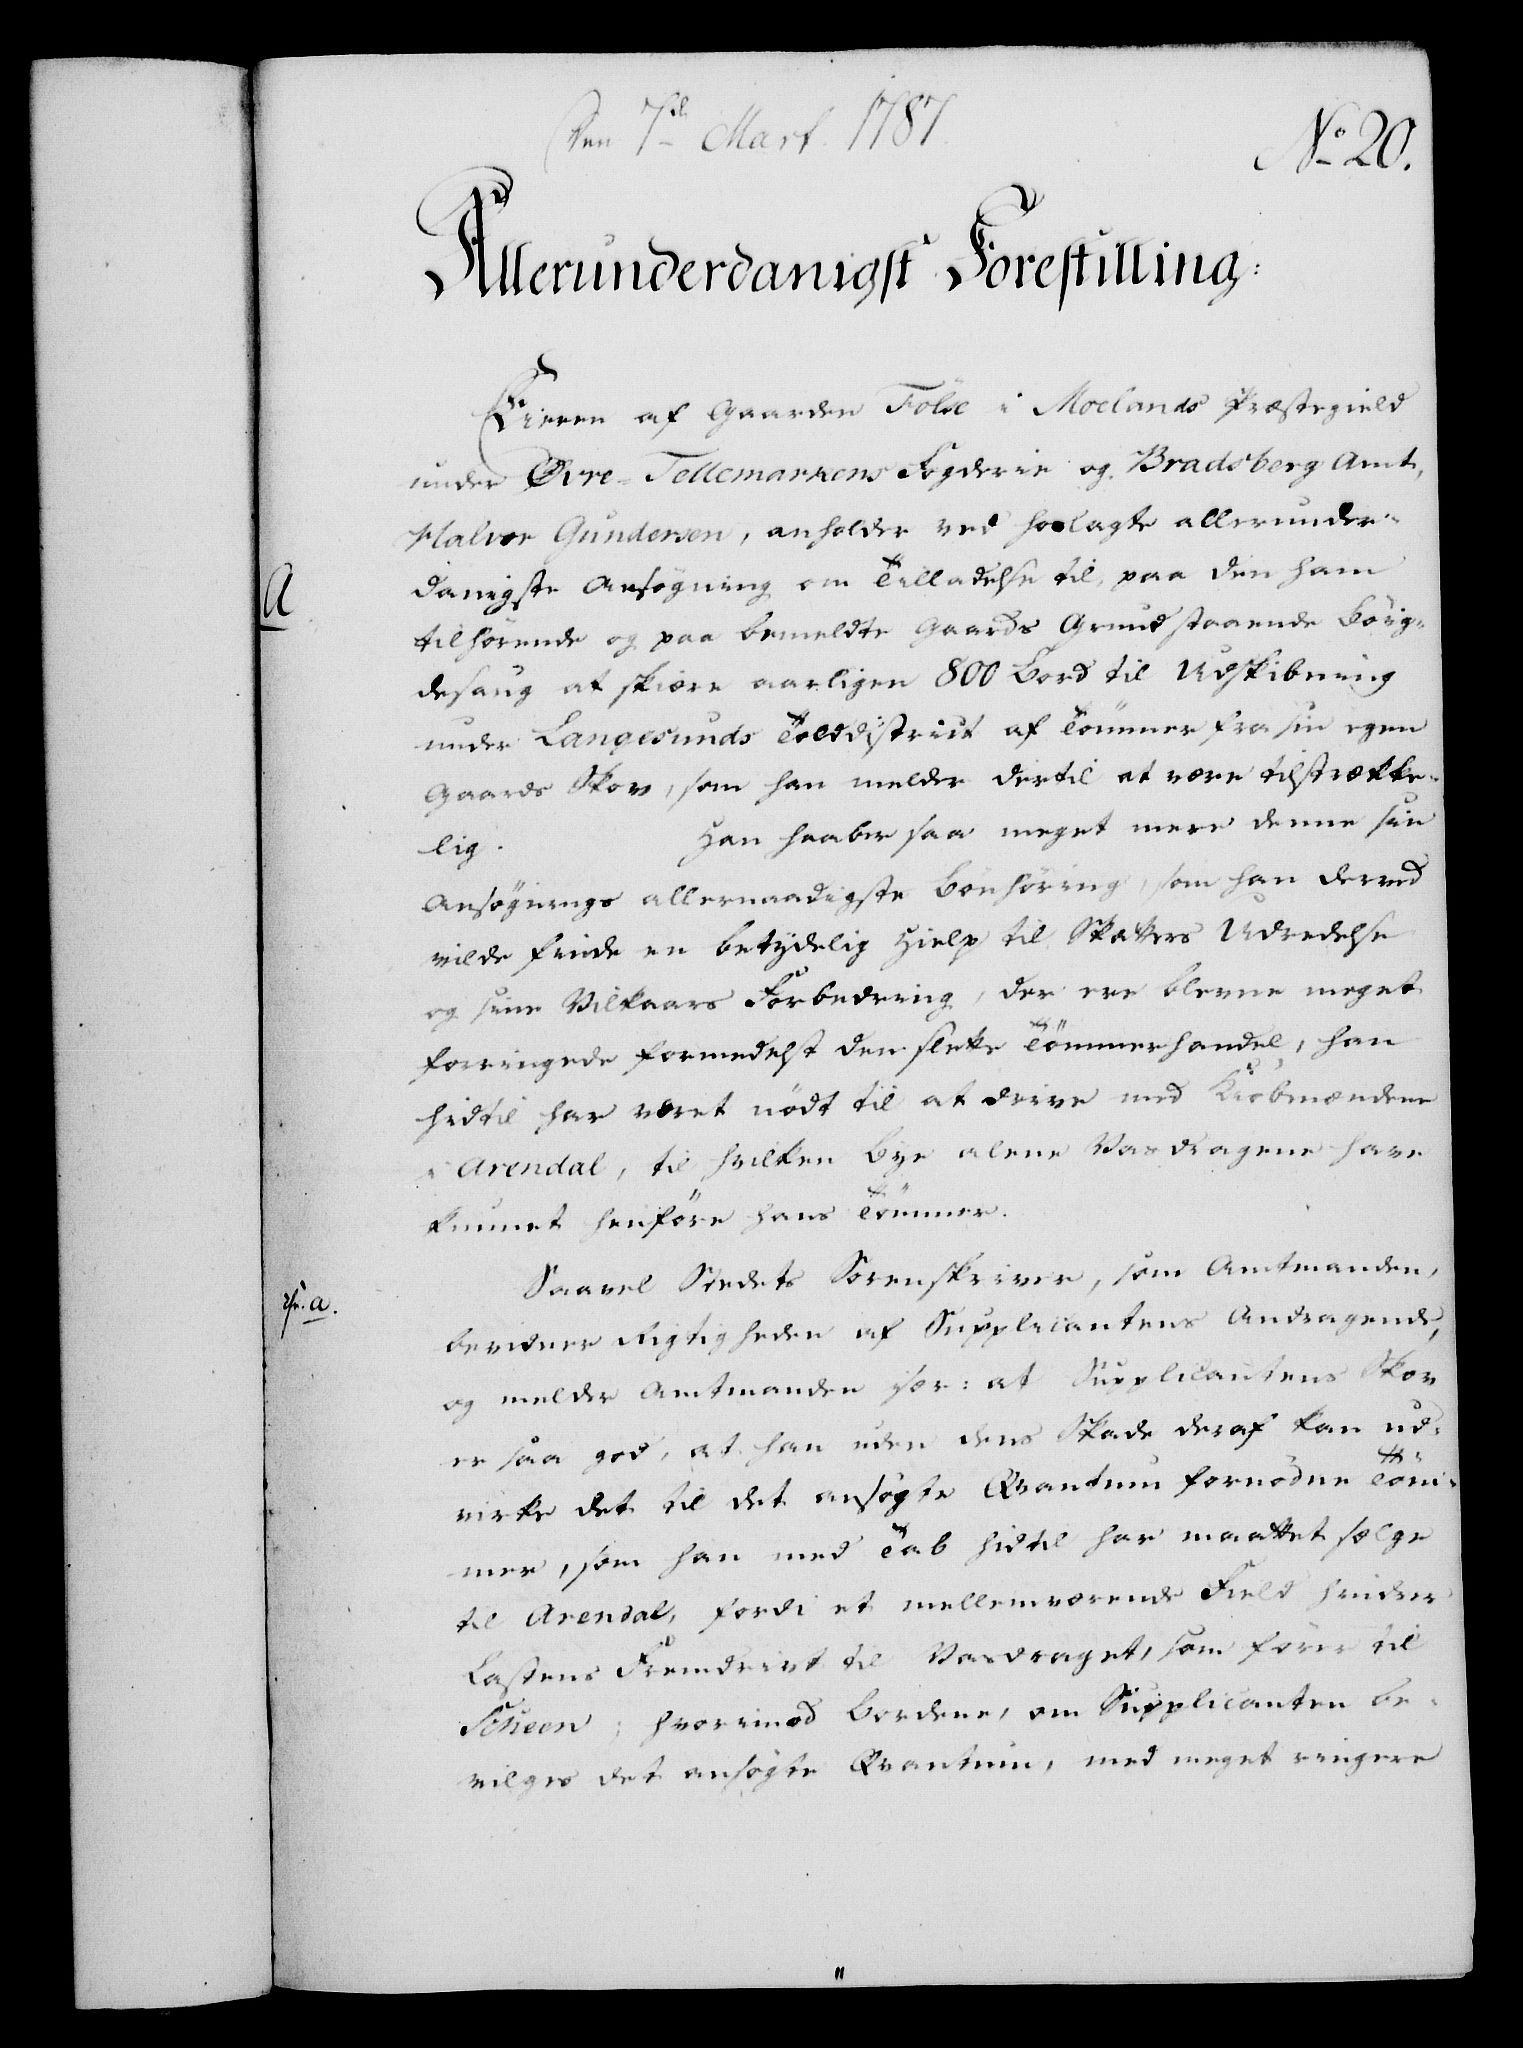 Den 7de Mart. 1787.
No 20.
Allerunderdanigst Forestilling:
Eieren af Gaarden Fölse i Moelands Præstegield
under Øvre-Tellemarkens Fogderie og Bradsberg Amt,
Halvor Gundersen, anholder ved hoslagte allerunder-
A
danigste Ansøgning om Tilladelse til, paa den ham
tilhörende og paa bemeldte Gaards Grund staaende Böig-
desaug at skiære aarligen 800 Bord til Udskibning
under Langesunds Tolddistrict af Tömmer fra sin egen
Gaards Skov, som han melder dertil at være tilstrække-
lig. Han haaber saa meget mere denne sin
Ansøgnings allernaadigste Bönhöring, som han derved
vilde finde en betydelig Hielp til Skatters Udredelse
og sine Vilkaars Forbedring, der ere blevne meget
forringede formedelst den slette Tömmerhandel, han
hidtil har været nödt til at drive med Kiöbmændene
i Arendal, til hvilken Bye alene Vasdragene have
kunnet henföre hans Tömmer.
cfr. a.
Saavel Stedets Sorenskriver, som Amtmanden,
bevidner Rigtigheden af Supplicantens Andragende,
og melder Amtmanden især: at Supplicantens Skov
er saa god, at han uden dens Skade deraf kan ud-
virke det til det ansøgte Qvantum fornödne Töm-
mer, som han med Tab hidtil har maattet sælge
til Arendal, fordi et mellemværende Field hindrer
Lastens Fremdrivt til Vasdraget, som förer til
Scheen; hvorimod Bordene, om Supplicanten be-
vilges det ansøgte Qvantum, med meget ringere